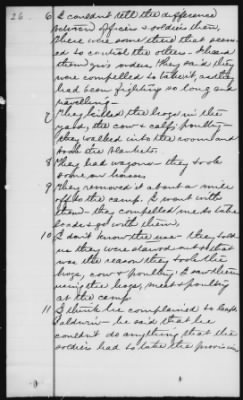 26
6 I couldn't tell the difference
between officers & soldiers then,
There were some there that seem
ed to control the others - I heard
them give orders, they said they
were compelled to take it, as they
had been fighting so long and
travelling -
7 They killed the hogs in the
yard, the cow & calf, poultry -
they walked into the room and
took the blankets
8 They had wagons - they took
some on horses
9 They removed it about a mile
off to the camp. I went with
them - they compelled me to take
loads go with them,
10 I don't know the use - they told
us they were starved out & that
was the reason they took the
hogs, cow & poultry. I saw them
using the hogs, meat & poultry
at the camp
11 I think he complained to
Baldwin - he said that he
couldn't do anything that the
soldiers had to take the provision